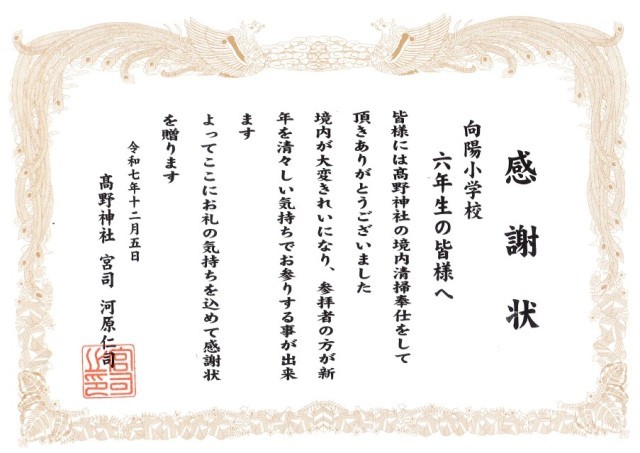 感謝状
向陽小学校
六年生の皆様へ
皆様には髙野神社の境内清掃奉仕をして
頂きありがとうございました
境内が大変きれいになり、参拝者の方が新
年を清々しい気持ちでお参りする事が出来
ます
よってここにお礼の気持ちを込めて感謝状
を贈ります
令和七年十二月五日
髙野神社 宮司 河原仁司
宮司之印